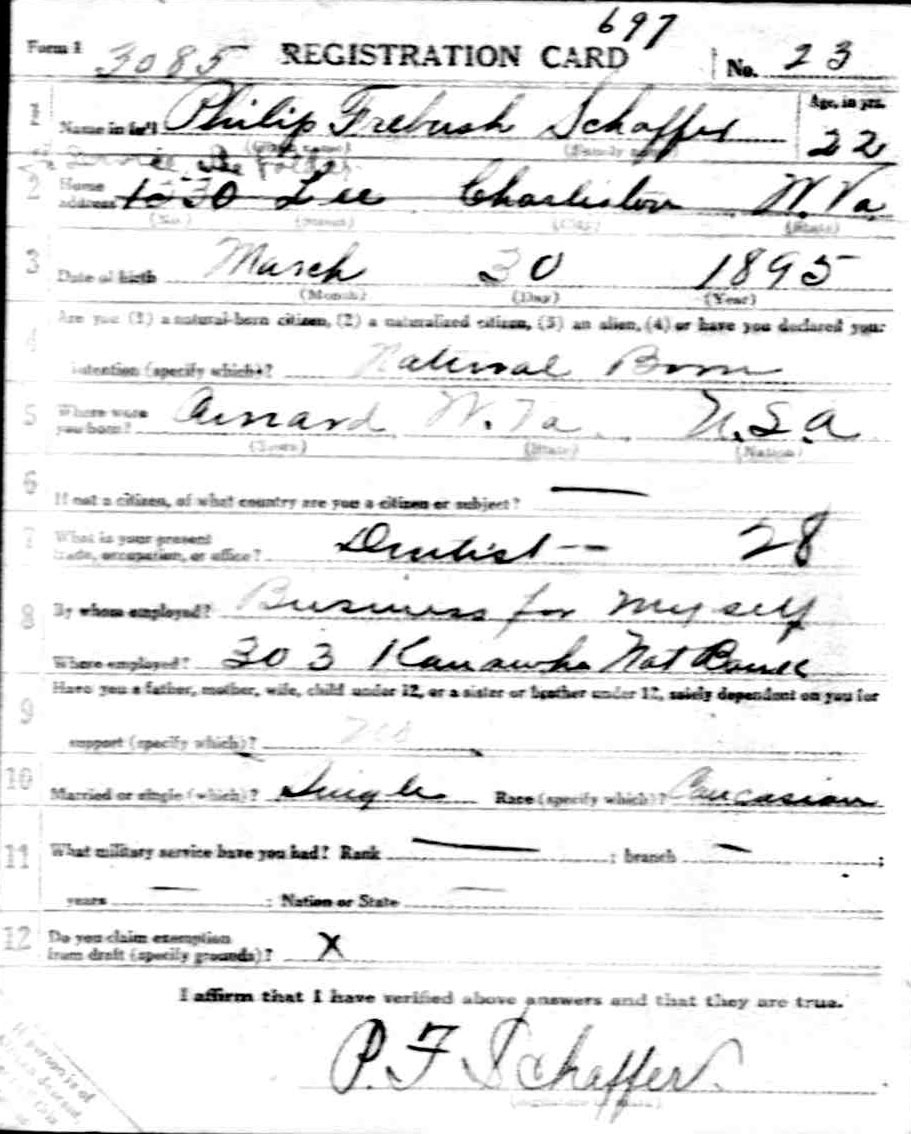 697
Form 1 3085 REGISTRATION CARD No. 23
1 Name in full Philip Frebush Schaffer Age, in yrs. 22
(Given name) (Family name)
2 Home address 1030 Lee Charleston W. Va.
(No.) (Street) (City) (State)
3 Date of birth March 30 1895
(Month) (Day) (Year)
4 Are you (1) a natural-born citizen, (2) a naturalized citizen, (3) an alien, (4) or have you declared your
intention (specify which)? Natural Born
5 Where were you born? W. Va. U.S.A
(Town) (State) (Nation)
6 If not a citizen, of what country are you a citizen or subject? —
7 What is your present trade, occupation, or office? Dentist -- 28
8 By whom employed? Business for myself
Where employed? 303 Kanawha Nat Bank
9 Have you a father, mother, wife, child under 12, or a sister or brother under 12, solely dependent on you for
support (specify which)?
10 Married or single (which)? Single Race (specify which)? Caucasian
11 What military service have you had? Rank — ; branch — ;
years — ; Nation or State —
12 Do you claim exemption from draft (specify grounds)? X
I affirm that I have verified above answers and that they are true.
P. F. Schaffer